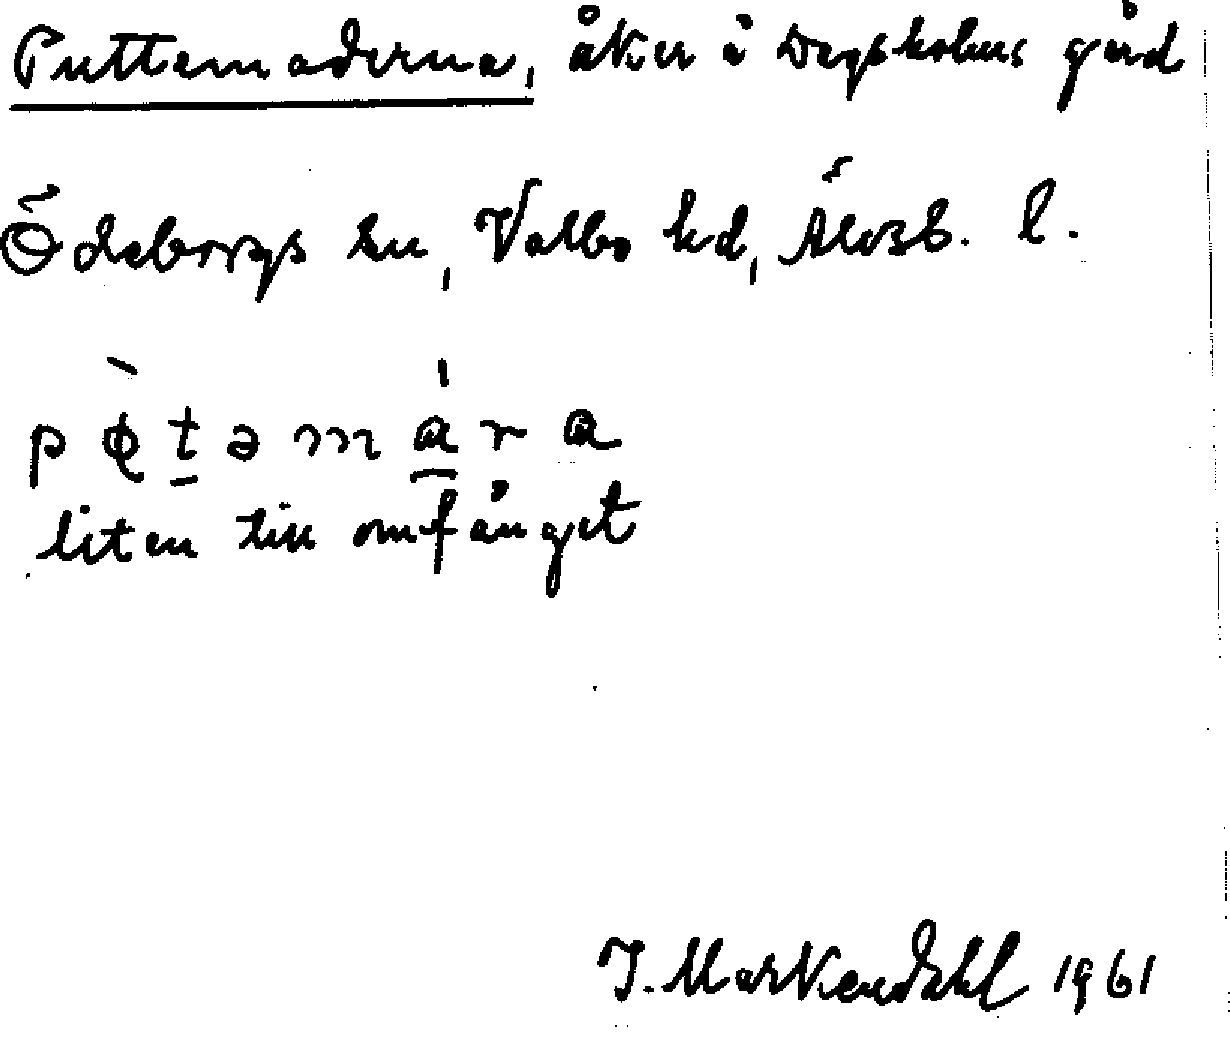 Puttemaderna, åker å Dagsholms gård
Ödeborgs sn, Valbo hd, Älvsb. l.
pø̀təmára
liten till omfånget
J. Markendahl 1961